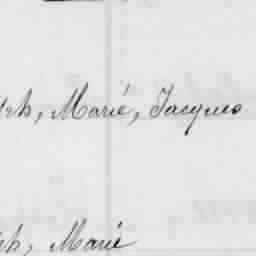 Marie, Jacques
Marie